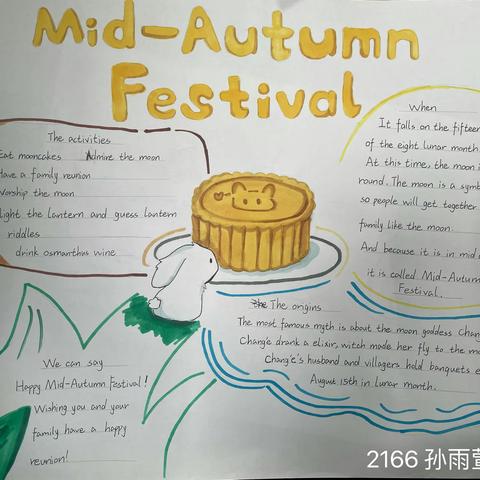 Mid-Autumn
Festival
The activities
Eat mooncakes Admire the moon
Have a family reunion
Worship the moon
light the Lantern and guess Lantern
riddles
drink osmanthus wine
When
It falls on the fifteen
of the eight lunar month.
At this time, the moon i
round. The moon is a symb
so people will get together
family like the moon.
And because it is in mid a
it is called Mid-Autum
Festival.
The The origins
The most famous myth is about the moon goddess Chang
Chang'e drank a elixir, witch made her fly to the mo
Chang'e's husband and villagers hold banquets e
August 15th in lunar month.
We can say
Happy Mid-Autumn Festival!
Wishing you and your
family have a happy
reunion!
2166 孙雨萱